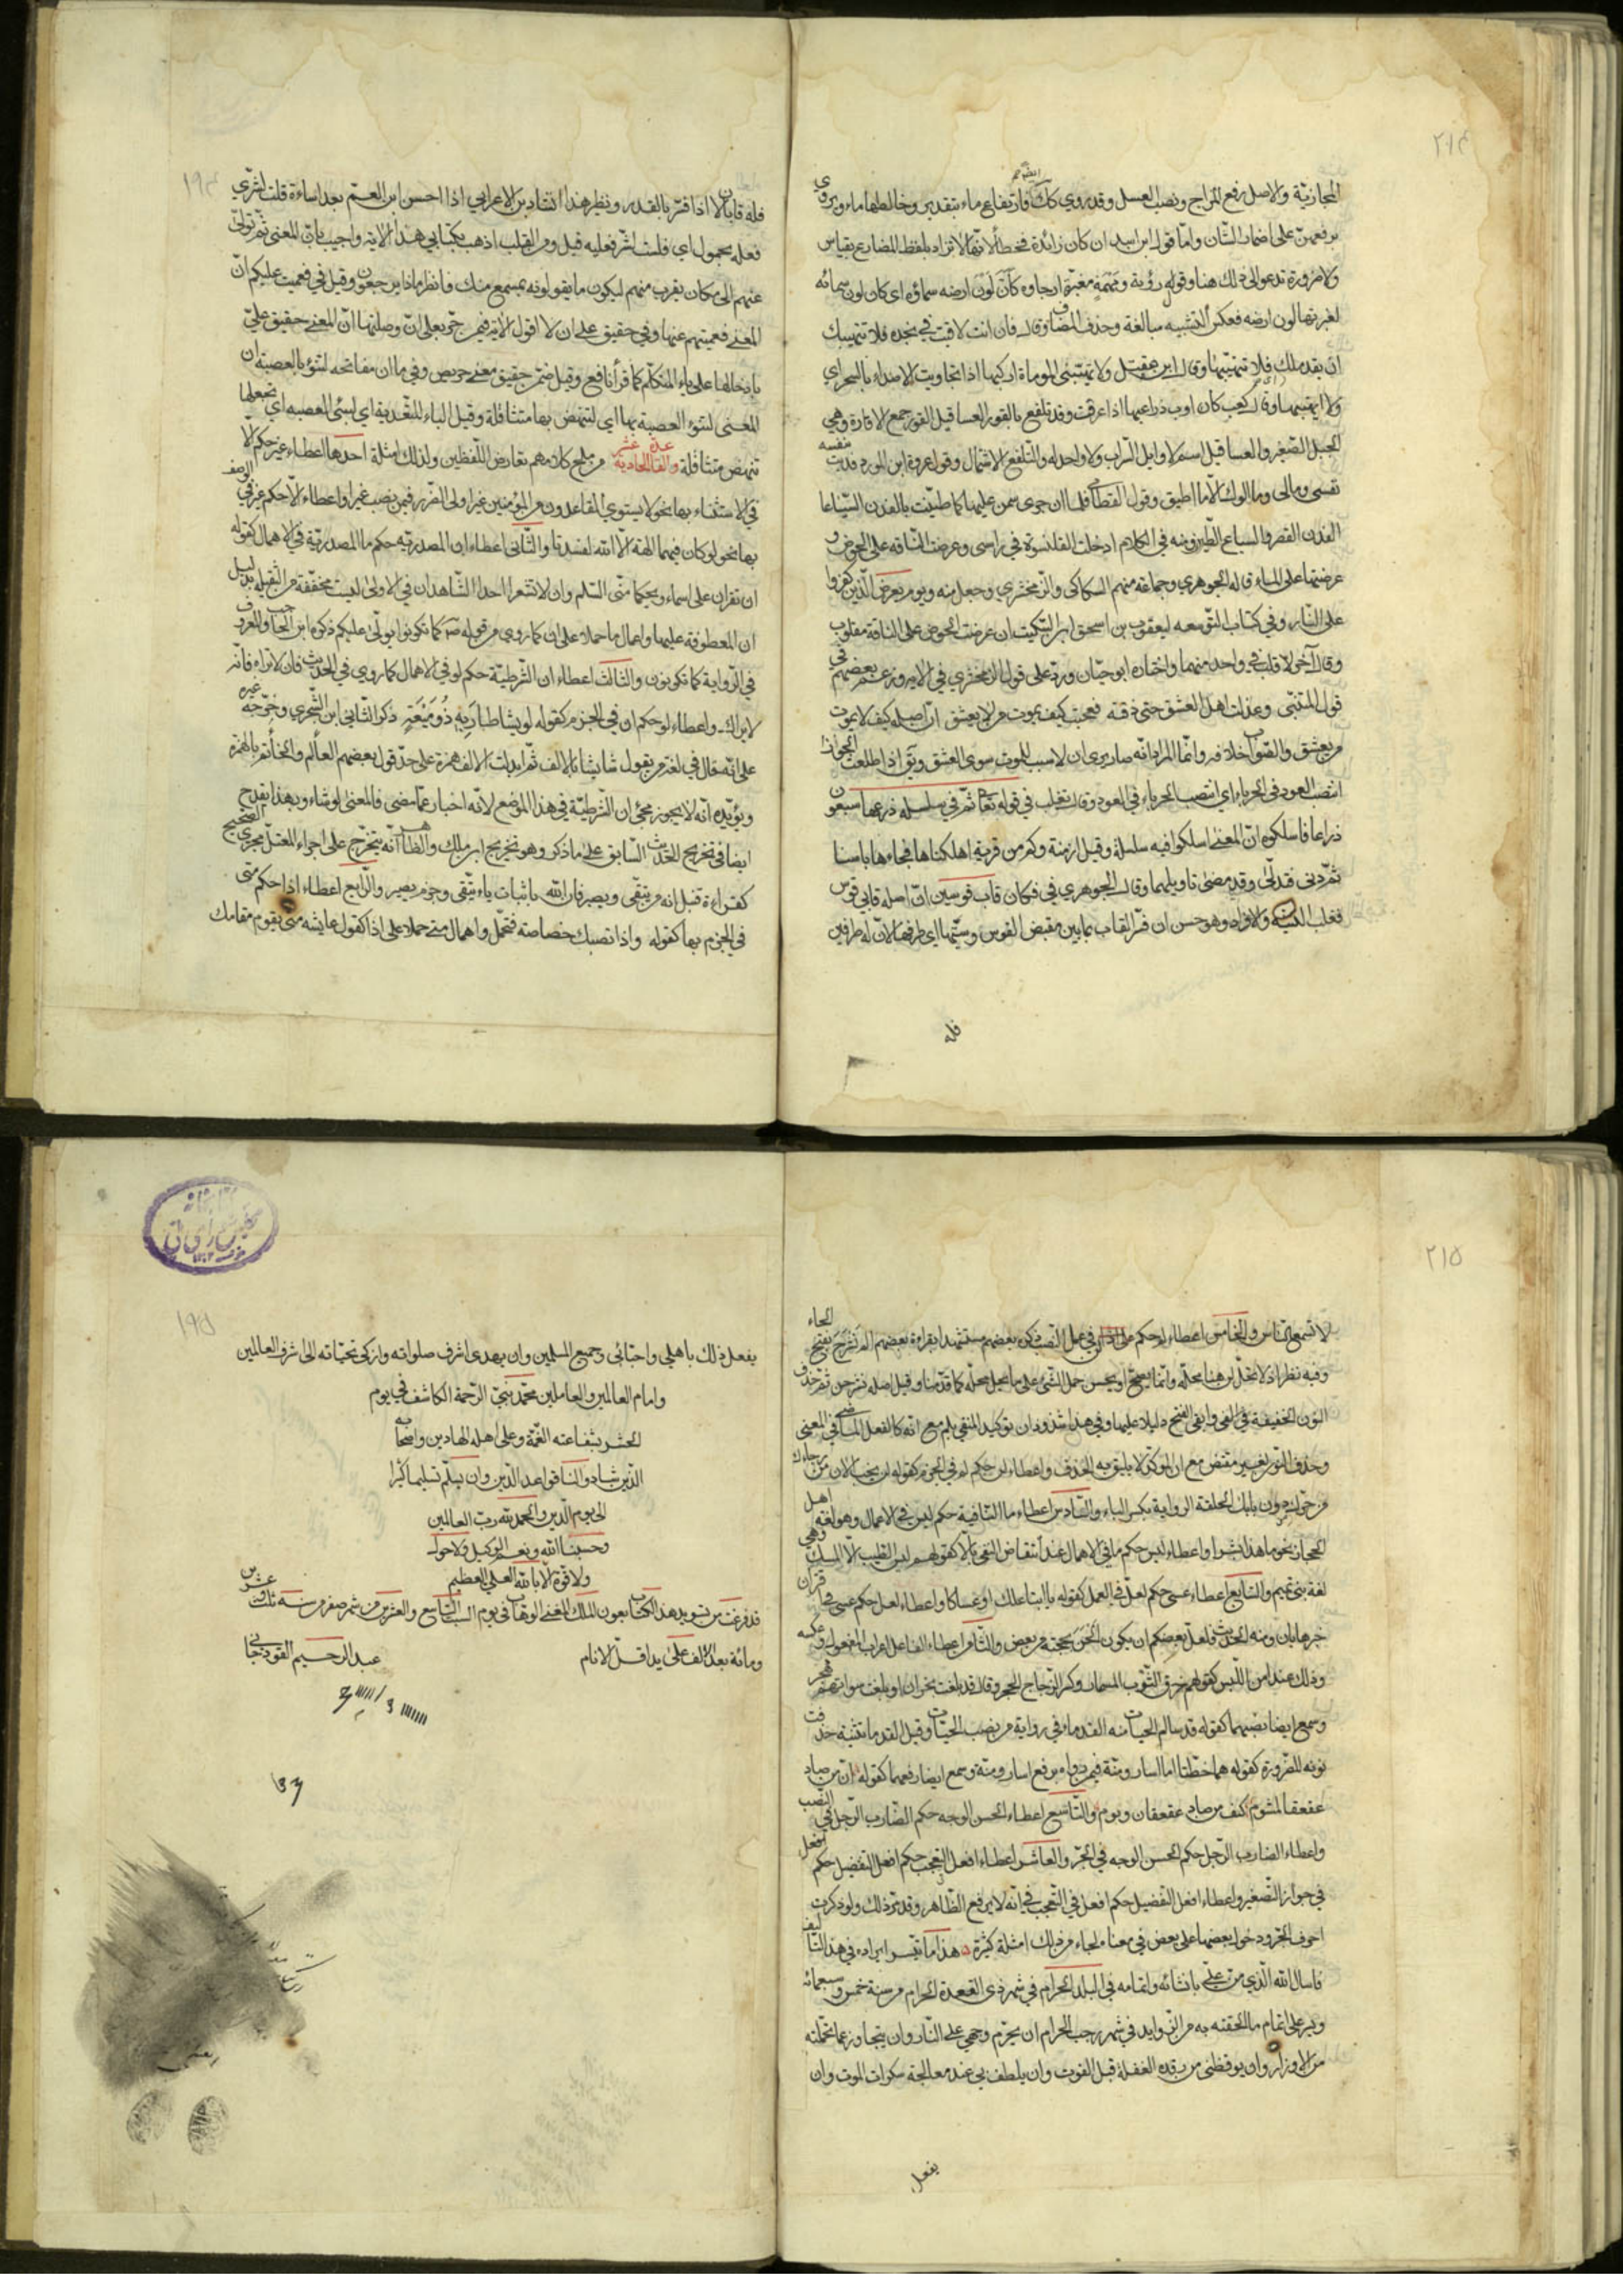 ٢١٤
المجازيّة والاصل رفع المزاج ونصب العسل وقد روي كذلك فارتفاع ماء بتقدير وخالطها ماء ويروى
برفعهنّ على اضمار الشّان وامّا قول ابن اسد ان كان زائدة فخطأ لانّها لا تزاد بلفظ المضارع بقياس
ولا ضرورة تدعو الى ذلك هنا وقول رؤبة ومهمه مغبرّة ارجاؤه كأنّ لون ارضه سماؤه اى كان لون سمائه
لغبرتها لون ارضه فعكس التشبيه مبالغة وحذف المضاف وقال فان انت لاقيت في نجدة فلا تتهيبك
ان تقدما اي تلك فلا تتهيّبها وقال ابن مقبل ولا تهيّبني الموماة اركبها اذا تجاوبت الاصداء بالسحر اي
ولا اتهيبها وقال كعب كان اوب ذراعيها اذا عرقت وقد تلفع بالقور العساقيل القور جمع الاقارة وهي
الجبل الصّغير والعساقيل اسم لاوايل السّراب ولا واحد له والتّلفع الاشتمال وقول عروة ابن الورد فديت بنفسه
نفسي ومالي وما آلوك الا ما اطيق وقول القطامي فلما ان جرى سمن عليها كما طيّنت بالفدن السّياعا
الفدن القصر والسياع الطّين ومنه في الكلام ادخلت القلنسوة في راسى وعرضت النّاقه على الحوض و
عرضتها على الماء قاله الجوهري وجماعة منهم السكاكي والزّمخشري وجعل منه ويوم يعرض الّذين كفروا
على النّار وفي كتاب التّوسعه ليعقوب بن اسحق ابن السّكيت ان عرضت الحوض على الناقة مقلوب
وقال آخر لا قلب في واحد منهما واختاره ابو حيّان وردّ على قول الزمخشري في الاية وزعم بعضهم في
قول المتنبّى وعذلت اهل العشق حتى ذقته فعجبت كيف يموت من لا يعشق انّ اصله كيف لا يموت
من يعشق والصّواب خلافه وانّما المراد انه صار يرى ان لا سبب للموت سوى العشق ويق اذا طلعت الجوزاء
انتصب العود في الحرباء اي انتصب الحرباء في العود وقال ثعلب في قوله تعالى ثمّ في سلسلة ذرعها سبعون
ذراعا فاسلكوه انّ المعنى اسلكوا فيه سلسلة وقيل ان منه وكم من قرية اهلكناها فجاءها باسنا
ثمّ دنى فتدلّى وقد مضى تاويلهما وقال الجوهري في فكان قاب قوسين انّ اصله قابي قوس
فقلب التثنية والافراد وهو حسن ان فسّر القاب بما بين مقبض القوس وسيتها اي طرفها لانّ له طرفين
فله
١٩٤
فله قابان لا اذا فسّر بالقدر ونظير هذا انشاد بن الاعرابي اذا احسن ابن العمّ بعد اساءة فلست لشرّي
فعله بحمول اي فلست لشرّ فعليه قيل ومن القلب اذهب بكتابي هذا الاية واجيب بانّ المعنى ثمّ تولّ
عنهم الى مكان يقرب منهم ليكون ما يقولونه بمسمع منك فانظر ماذا يرجعون وقيل في فعميت عليكم انّ
المعنى فعميتم عنها وفي حقيق على ان لا اقول الاية فيمن جرّ بعلى انّ وصلتها انّ المعنى حقيق عليّ
بادخالها على ياء المتكلّم كما قرأ نافع وقيل ضمّن حقيق معنى حريص وفي ما ان مفاتحه لتنوء بالعصبة ان
المعنى لتنوء العصبة بها اي لتنهض بها متثاقلة وقيل الباء للتعدية اي لتنئ العصبه اي تجعلها
تنهض متثاقلة والقاعدة الحادية عشر من ملح كلامهم تقارض اللّفظين ولذلك امثلة احدها اعطاء غير حكم الّا
في الاستثناء بها نحو لا يستوي القاعدون من المؤمنين غير اولى الضّرر فيمن نصب غير واعطاء الّا حكم غير في الوصف
بها نحو لو كان فيهما الهة الّا الله لفسدتا والثّاني اعطاء ان المصدريه حكم ما المصدريّة في الاهمال كقوله
ان تقران على اسماء ويحكما منّى السّلام وان لا تشعرا احدا الشّاهد ان في الاولى ليست مخففة من الثقيله بدليل
ان المعطوفة عليها واعمال ما حملا على ان كما روي من قوله ص كما تكونوا يولّى عليكم ذكره ابن الحاجب والمعروف
في الرّواية كما تكونون والثّالث اعطاء ان الشّرطيّة حكم لو في الاهمال كما روي في الحديث فان لا تراه فانّه
يراك واعطاء لو حكم ان في الجزم كقوله لو يشأ طار به ذو ميعة ذكر الثّاني ابن الشّجري وخرّجه غيره
على انّه جاء في لغة من يقول شا يشا بالالف ثمّ ابدلت الالف همزة على حدّ قول بعضهم العألم والخأتم بالهمزة
ويؤيّده انّه لا يجوز مجئ ان الشّرطيّة في هذا الموضع لانّه اخبار عمّا مضى فالمعنى لو شاء وبهذا يقدح
ايضا في تخريج الحديث السّابق على ما ذكر وهو تخريج ابن مالك والظّاهر انّه يتخرّج على اجراء المعتلّ مجرى الصحيح
كقراءة قنبل انه من يتّقي ويصبر فان الله باثبات ياء يتّقي وجزم يصبر والرّابع اعطاء اذا حكم متى
في الجزم بها كقوله واذا تصبك خصاصة فتحمّل واهمال متى حملا على اذا كقول عايشه متى يقوم مقامك
٢١٥
لا تسمع النّاس والخامس اعطاء لم حكم لن في عمل النّصب ذكره بعضهم مستشهدا بقراءة بعضهم الم نشرح بفتح الحاء
وفيه نظر اذ لا تحلّ لن هنا محلّه وانّما يصحّ او يحسن حمل الشّئ على ما يحل محلّه كما قدّمنا وقيل اصله نشرحن ثمّ حذف
النّون الخفيفة وابقى الفتح دليلا عليها وفي هذا شذوذان توكيد المنفي بلم مع انّه كالفعل الماضي في المعنى
وحذف النّون لغير مقتض مع ان المؤكّد لا يليق به الحذف واعطاء لن حكم لم في الجزم كقوله لن يخب الان من رجائك
من حرّك دون بابك الحلقة الرواية بكسر الباء والسّادس اعطاء ما النّافية حكم ليس في الاعمال وهو لغة اهل
الحجاز نحو ما هذا بشرا واعطاء ليس حكم ما في الاهمال عند انتقاض النّفي بالّا كقولهم ليس الطّيب الّا المسك وهي
لغة بنى تميم والسّابع اعطاء عسى حكم لعلّ في العمل كقوله يا ابتا علك او عساكا واعطاء لعل حكم عسى في اقتران
خبرها بان ومنه الحديث فلعلّ بعضكم ان يكون الحن بحجته من بعض والثّامن اعطاء الفاعل اعراب المفعول وعكسه
وذلك عند امن اللّبس كقولهم خرق الثّوب المسمار وكسر الزّجاج الحجر وقال قد بلغت نجران او بلغت سواتهم هجر
وسمع ايضا نصبهما كقوله قد سالم الحيّات منه القدما وفي رواية من نصب الحيّات وقيل القدما تثنية حذفت
نونه للضّرورة كقوله هما خطّتا اما اسار ومنّة فيمن رواه برفع اسار ومنّة وسمع ايضا رفعهما كقوله انّ من صاد
عقعقا لمشوم كيف من صاد عقعقان وبوم والتّاسع اعطاء الحسن الوجه حكم الضّارب الرّجل في النّصب
واعطاء الضارب الرّجل حكم الحسن الوجه في الجرّ والعاشر اعطاء افعل في التّعجب حكم افعل التفضيل حكم افعل
في جواز التّصغير واعطاء افعل التّفضيل حكم افعل في التّعجب في انّه لا يرفع الظّاهر وقد مرّ ذلك ولو ذكرت
احرف الجرّ ودخول بعضها على بعض في معناه لجاء من ذلك امثلة كثيرة هذا ما تيسر ايراده في هذا التّاليف
فاسال الله الّذي منّ عليّ بانشائه واتمامه في البلد الحرام في شهر ذي القعدة الحرام من سنة خمس وسبعمائه
ويسّر على اتمام ما الحقته به من الزّوايد في شهر رجب الحرام ان يحرّم وجهي على النّار وان يتجاوز عمّا تحمّلته
من الاوزار وان يوقظني من رقدة الغفلة قبل الفوت وان يلطف بي عند معالجة سكرات الموت وان
يفعل
١٩٥
يفعل ذلك باهلي واحبّائي وجميع المسلمين وان يهدي اشرف صلواته وازكى تحيّاته الى اشرف العالمين
وامام العالمين والعاملين محمّد نبيّ الرّحمة الكاشف في يوم
الحشر بشفاعته الغمّة وعلى اهله الهادين واصحابه
الّذين شادوا لنا قواعد الدّين وان يسلّم تسليما كثيرا
الى يوم الدّين والحمد لله ربّ العالمين
وحسبنا الله ونعم الوكيل ولا حول
ولا قوّة الّا بالله العليّ العظيم
قد فرغت من تسويد هذا الكتاب بعون الملك الغني الوهّاب في يوم السبت التّاسع والعشرين من شهر صفر من سنة ثلث وعشرين
ومائة بعد الالف على يد اقلّ الانام عبد الرحيم القوذجاني
كتابخانه
مجلس شورای ملی